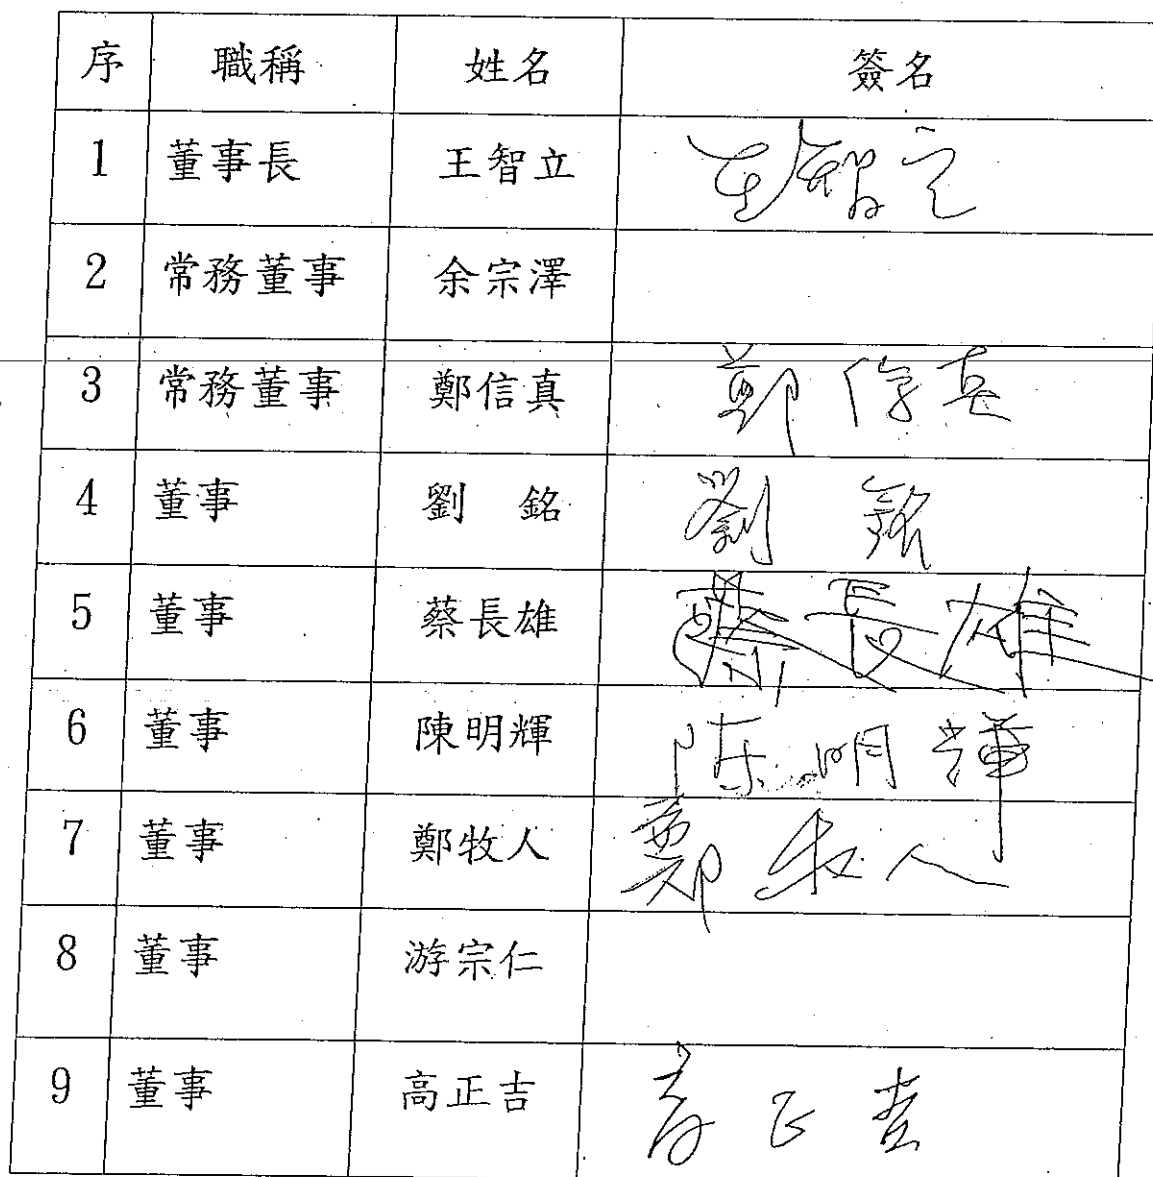 序 職稱 姓名 簽名
1 董事長 王智立 王智立
2 常務董事 余宗澤
3 常務董事 鄭信真 鄭信真
4 董事 劉 銘 劉 銘
5 董事 蔡長雄 蔡長雄
6 董事 陳明輝 陳明輝
7 董事 鄭牧人 鄭牧人
8 董事 游宗仁
9 董事 高正吉 高正吉